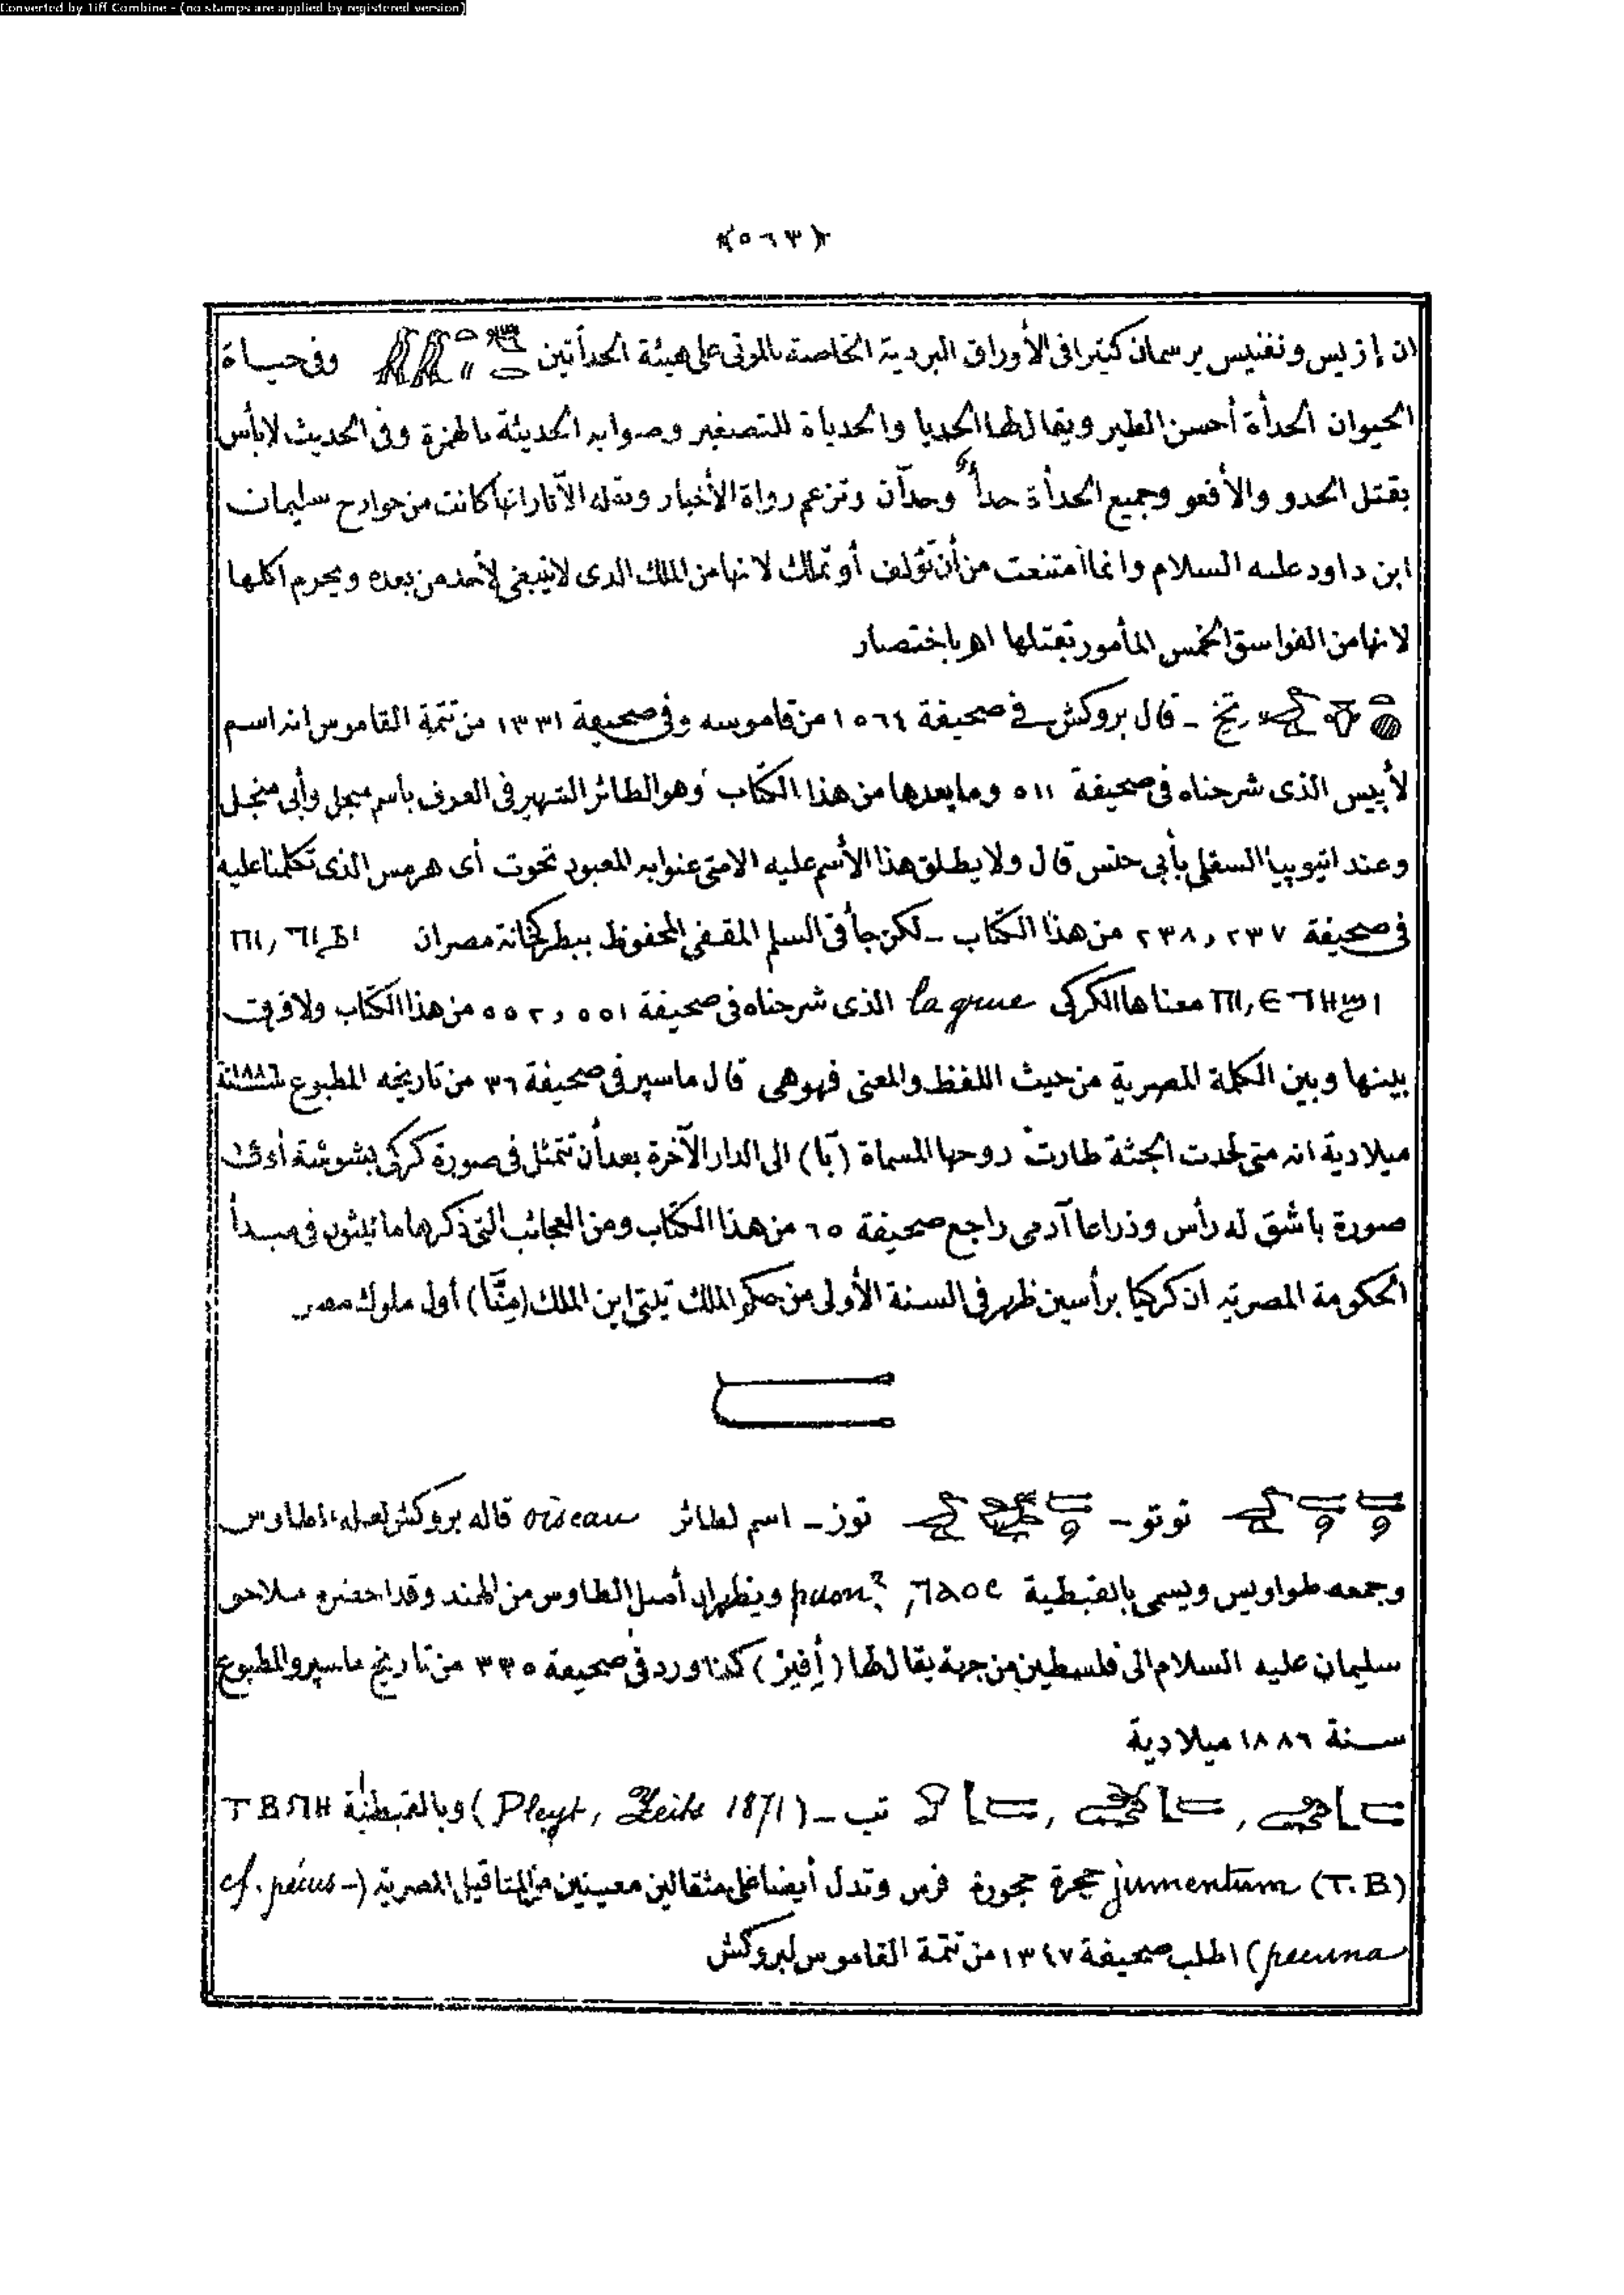 Converted by Tiff Combine - (no stamps are applied by registered version)
﴿٥٦٣﴾
ان إزيس ونفتيس يرسمان كثيرا فى الأوراق البردية الخاصة بالموتى على هيئة الحدأتين وفى حياة
الحيوان الحدأة أخسن الطير ويقال لها الحديا والحدياة للتصغير وصوابه الحديثة بالهمزة وفى الحديث لا بأس
بقتل الحدو والأفعو وجميع الحدأة حدأ وحدآن وتزعم رواة الأخبار ونقلة الآثار انها كانت من جوارح سليمان
ابن داود عليه السلام وانما امتنعت من أن تؤلف أو تملك لانها من الملك الذى لا ينبغى لأحد من بعده ويحرم اكلها
لانها من الفواسق الخمس المأمور بقتلها اهـ باختصار
تخ - قال بروكش فى صحيفة ١٥٦٤ من قاموسه وفى صحيفة ١٣٣١ من تتمة القاموس انه اسم
لأبيس الذى شرحناه فى صحيفة ٥١١ وما بعدها من هذا الكتاب وهو الطائر الشهير فى العرف باسم منجل وأبى منجل
وعند اتيوبيا السفلى بأبى حنس قال ولا يطلق هذا الأسم عليه الا متى عنوا به المعبود تحوت أى هرمس الذى تكلمنا عليه
فى صحيفة ٢٣٧ و ٢٣٨ من هذا الكتاب - لكن جأ فى السلم المقفى المحفوظ ببطركخانة مصر ان
معناها الكركى la grue الذى شرحناه فى صحيفة ٥٥١ و ٥٥٢ من هذا الكتاب ولا فرق
بينها وبين الكلمة المصرية من حيث اللفظ والمعنى فهى هى قال ماسپرو فى صحيفة ٣٦ من تاريخه المطبوع سنة ١٨٨٦
ميلادية انه متى لحدت الجثة طارت روحها المسماة (بَا) الى الدار الآخرة بعد أن تتمثل فى صورة كركى بشوشة أو فى
صورة باشق له رأس وذراعا آدمى راجع صحيفة ٦٥ من هذا الكتاب ومن العجائب التى ذكرها مانيثون فى مبدأ
الحكومة المصرية ان كركيا برأسين ظهر فى السنة الأولى من حكم الملك تتى ابن الملك (مِنَّا) أول ملوك مصر
توتو - توز - اسم لطائر oiseau قاله بروكش لعله الطاوس
وجمعه طواويس ويسمى بالقبطية ⲧⲁⲟⲥ, paon? ويظهر ان أصل الطاوس من الهند وقد احضره ملاحو
سليمان عليه السلام الى فلسطين من جهة يقال لها (أفير) كذا ورد فى صحيفة ٣٣٥ من تاريخ ماسپرو المطبوع
سنة ١٨٨٦ ميلادية
تب - (Pleyt, Zeits 1871) وبالقبطية ⲧⲃⲛⲏ
(T.B.) jumentum حجرة حجورة فرس وتدل أيضا على مثقالين معينين من المثاقيل المصرية (- cf. pecus
pecunia) اطلب صحيفة ١٣٤٧ من تتمة القاموس لبروكش